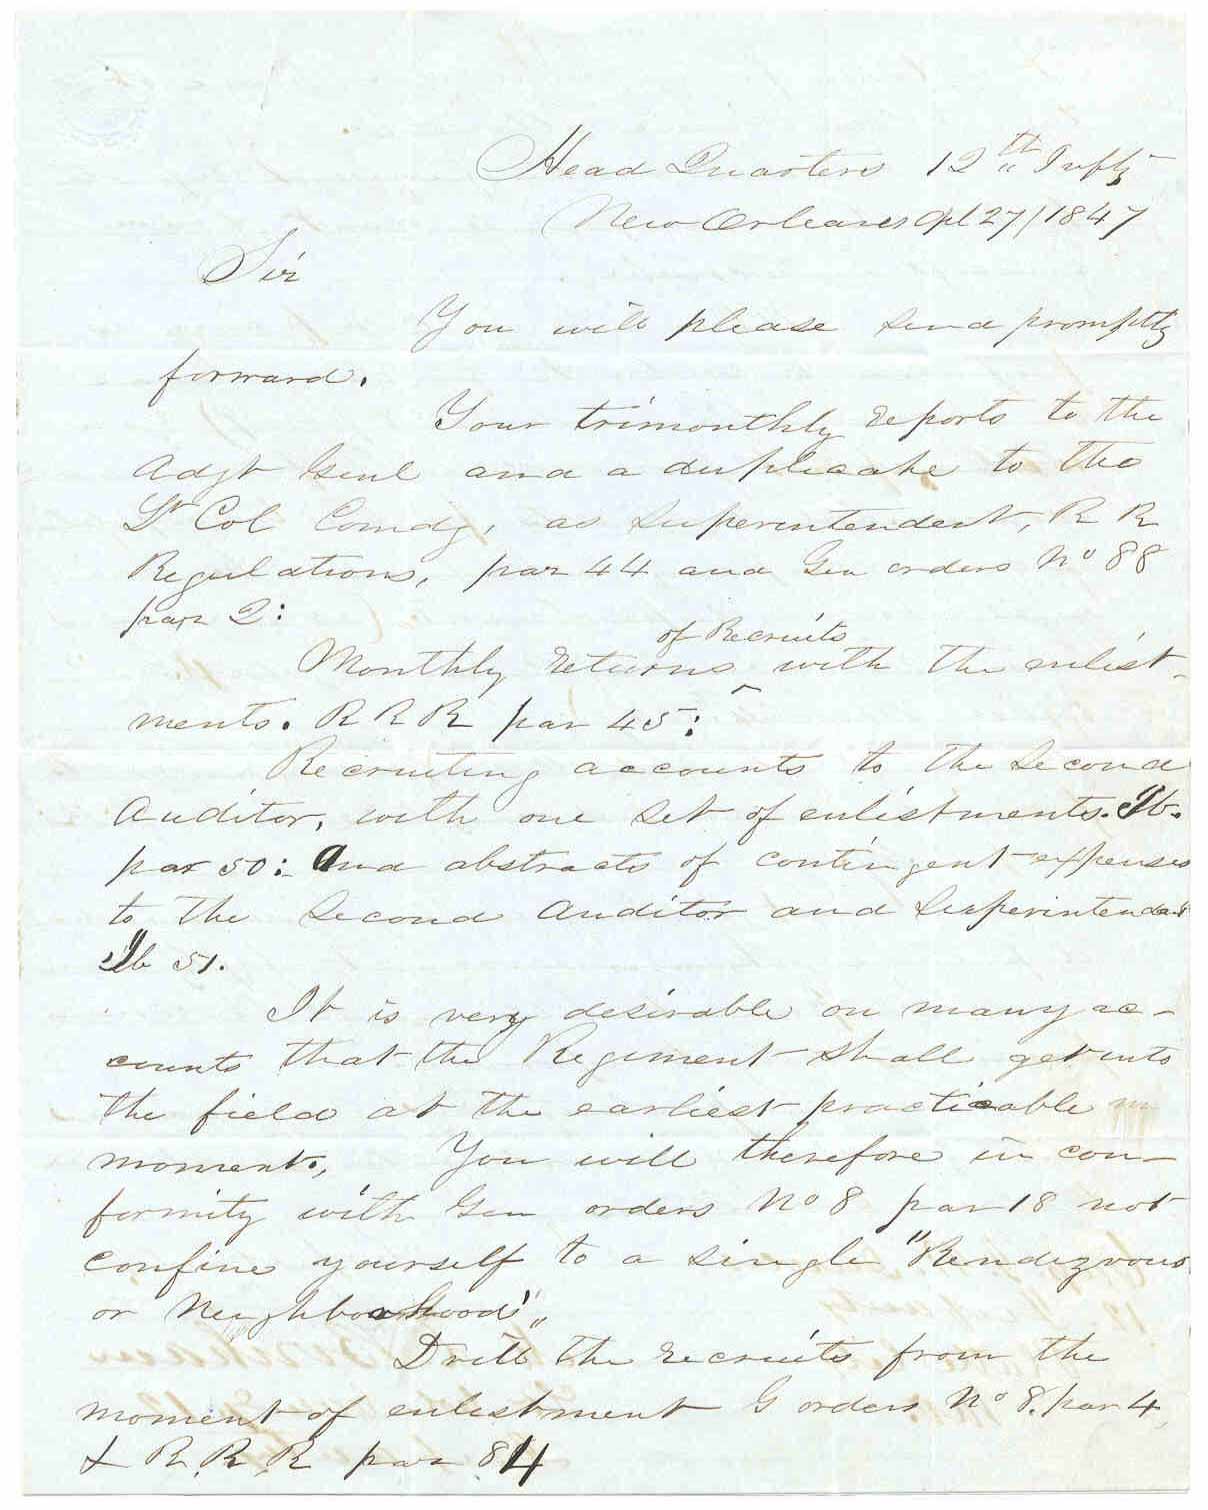 Head Quarters 12th Infty
New Orleans Apl 27/1847
Sir
You will please send promptly
forward.
Your trimonthly reports to the
Adjt Genl and a duplicate to the
Lt Col Comdg, as Superintendent, R R
Regulations, par 44 and Gen orders No 88
par 2:
of Recruits
Monthly returns ^ with the enlist-
ments. R R R par 45:
Recruiting accounts to the Second
Auditor, with one set of enlistments. Ib.
par 50: And abstracts of contingent expenses
to the Second Auditor and Superintendent
Ib 51.
It is very desirable on many ac-
counts that the Regiment shall get into
the field at the earliest practicable
moment., You will therefore in con-
formity with Gen orders No 8 par 18 not
confine yourself to a single "Rendezvous
or Neighborhood",
Drill the recruits from the
moment of enlistment G orders No 8. par 4,
& R. R. R par 84